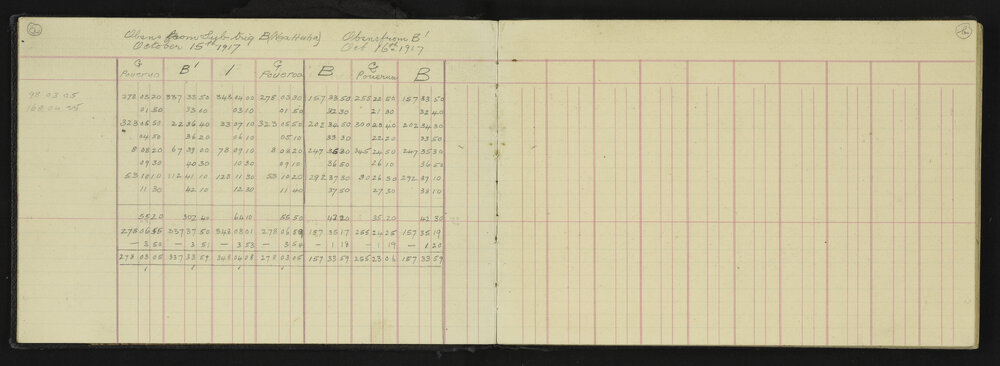 Obsns from Sub trig B (Ngahuha) Obsns from B'
October 15th 1917 Oct 16th 1917
G B' 1 G B G B
Pouerua Pouerua Pouerua
98 03 05
168 04 35
278 03 20 337 33 50 348 04 00 278 03 30 157 33 50 255 22 50 157 33 50
01 50 33 00 03 10 01 50 32 30 21 30 32 40
323 05 50 22 36 40 33 07 10 323 05 50 202 34 50 300 23 40 202 34 30
04 50 36 20 06 10 05 10 33 30 22 20 33 50
8 08 20 67 39 00 78 09 10 8 08 20 247 35 30 345 24 50 247 35 30
09 30 40 30 10 30 09 10 36 50 26 10 36 50
53 10 10 112 41 10 123 11 30 53 10 20 292 37 30 30 26 30 292 37 10
11 30 42 10 12 30 11 40 37 50 27 30 38 10
55 20 302 40 64 10 55 50 42 20 35 20 42 30
278 06 55 337 37 50 348 08 01 278 06 59 157 35 17 255 24 25 157 35 19
— 3 50 — 3 51 — 3 53 — 3 54 — 1 18 — 1 19 — 1 20
278 03 05 337 33 59 348 04 08 278 03 05 157 33 59 255 23 06 157 33 59